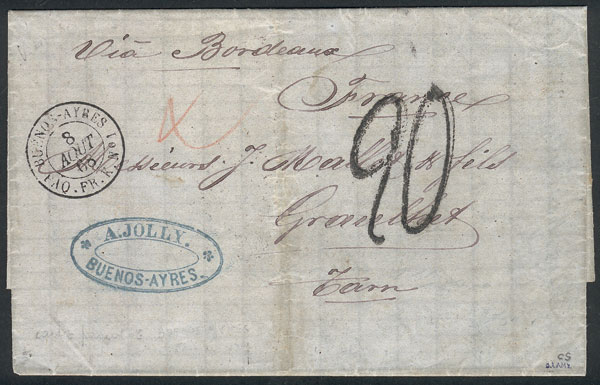 Viā Bordeaux
France
90
BUENOS-AYRES
8
AOUT
65
PAQ. FR. K. No 1
Messieurs J. & fils
Tarn
A. JOLLY.
BUENOS-AYRES
CS